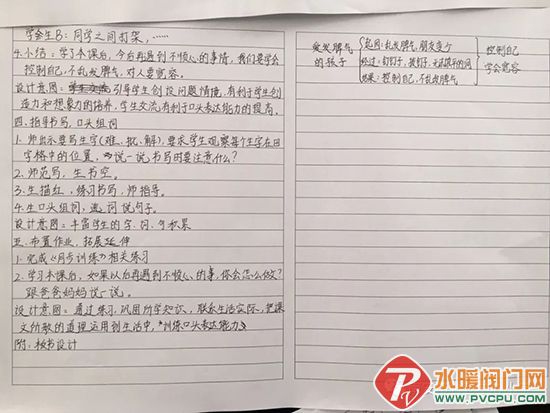 学会生B：同学之间打架，……
4.小结：学了本课后，今后再遇到不顺心的事情，我们要学会
控制自己，不乱发脾气，对人要宽容。
设计意图：引导学生创设问题情境，有利于学生创
造力和想象力的培养，学生交流有利于口头表达能力的提高。
四.指导书写，口头组词
1.师出示要写生字（难、批、解），要求学生观察每个生字在田
字格中的位置，说一说书写时要注意什么？
2.师范写，生书空。
3.生描红，练习书写，师指导。
4.生口头组词，选词说句子。
设计意图：丰富学生的字、词、句积累
五.布置作业，拓展延伸
1.完成《同步训练》相关练习
2.学习本课后，如果以后再遇到不顺心的事，你会怎么做？
跟爸爸妈妈说一说。
设计意图：通过练习，巩固所学知识，联系生活实际，把课
文所教的道理运用到生活中，训练口头表达能力
附：板书设计
爱发脾气
的孩子
起因：乱发脾气，朋友变少
经过：钉钉子，拔钉子，
结果：控制自己，不乱发脾气
控制自己
学会宽容
水暖阀门网
WWW.PVCPU.COM